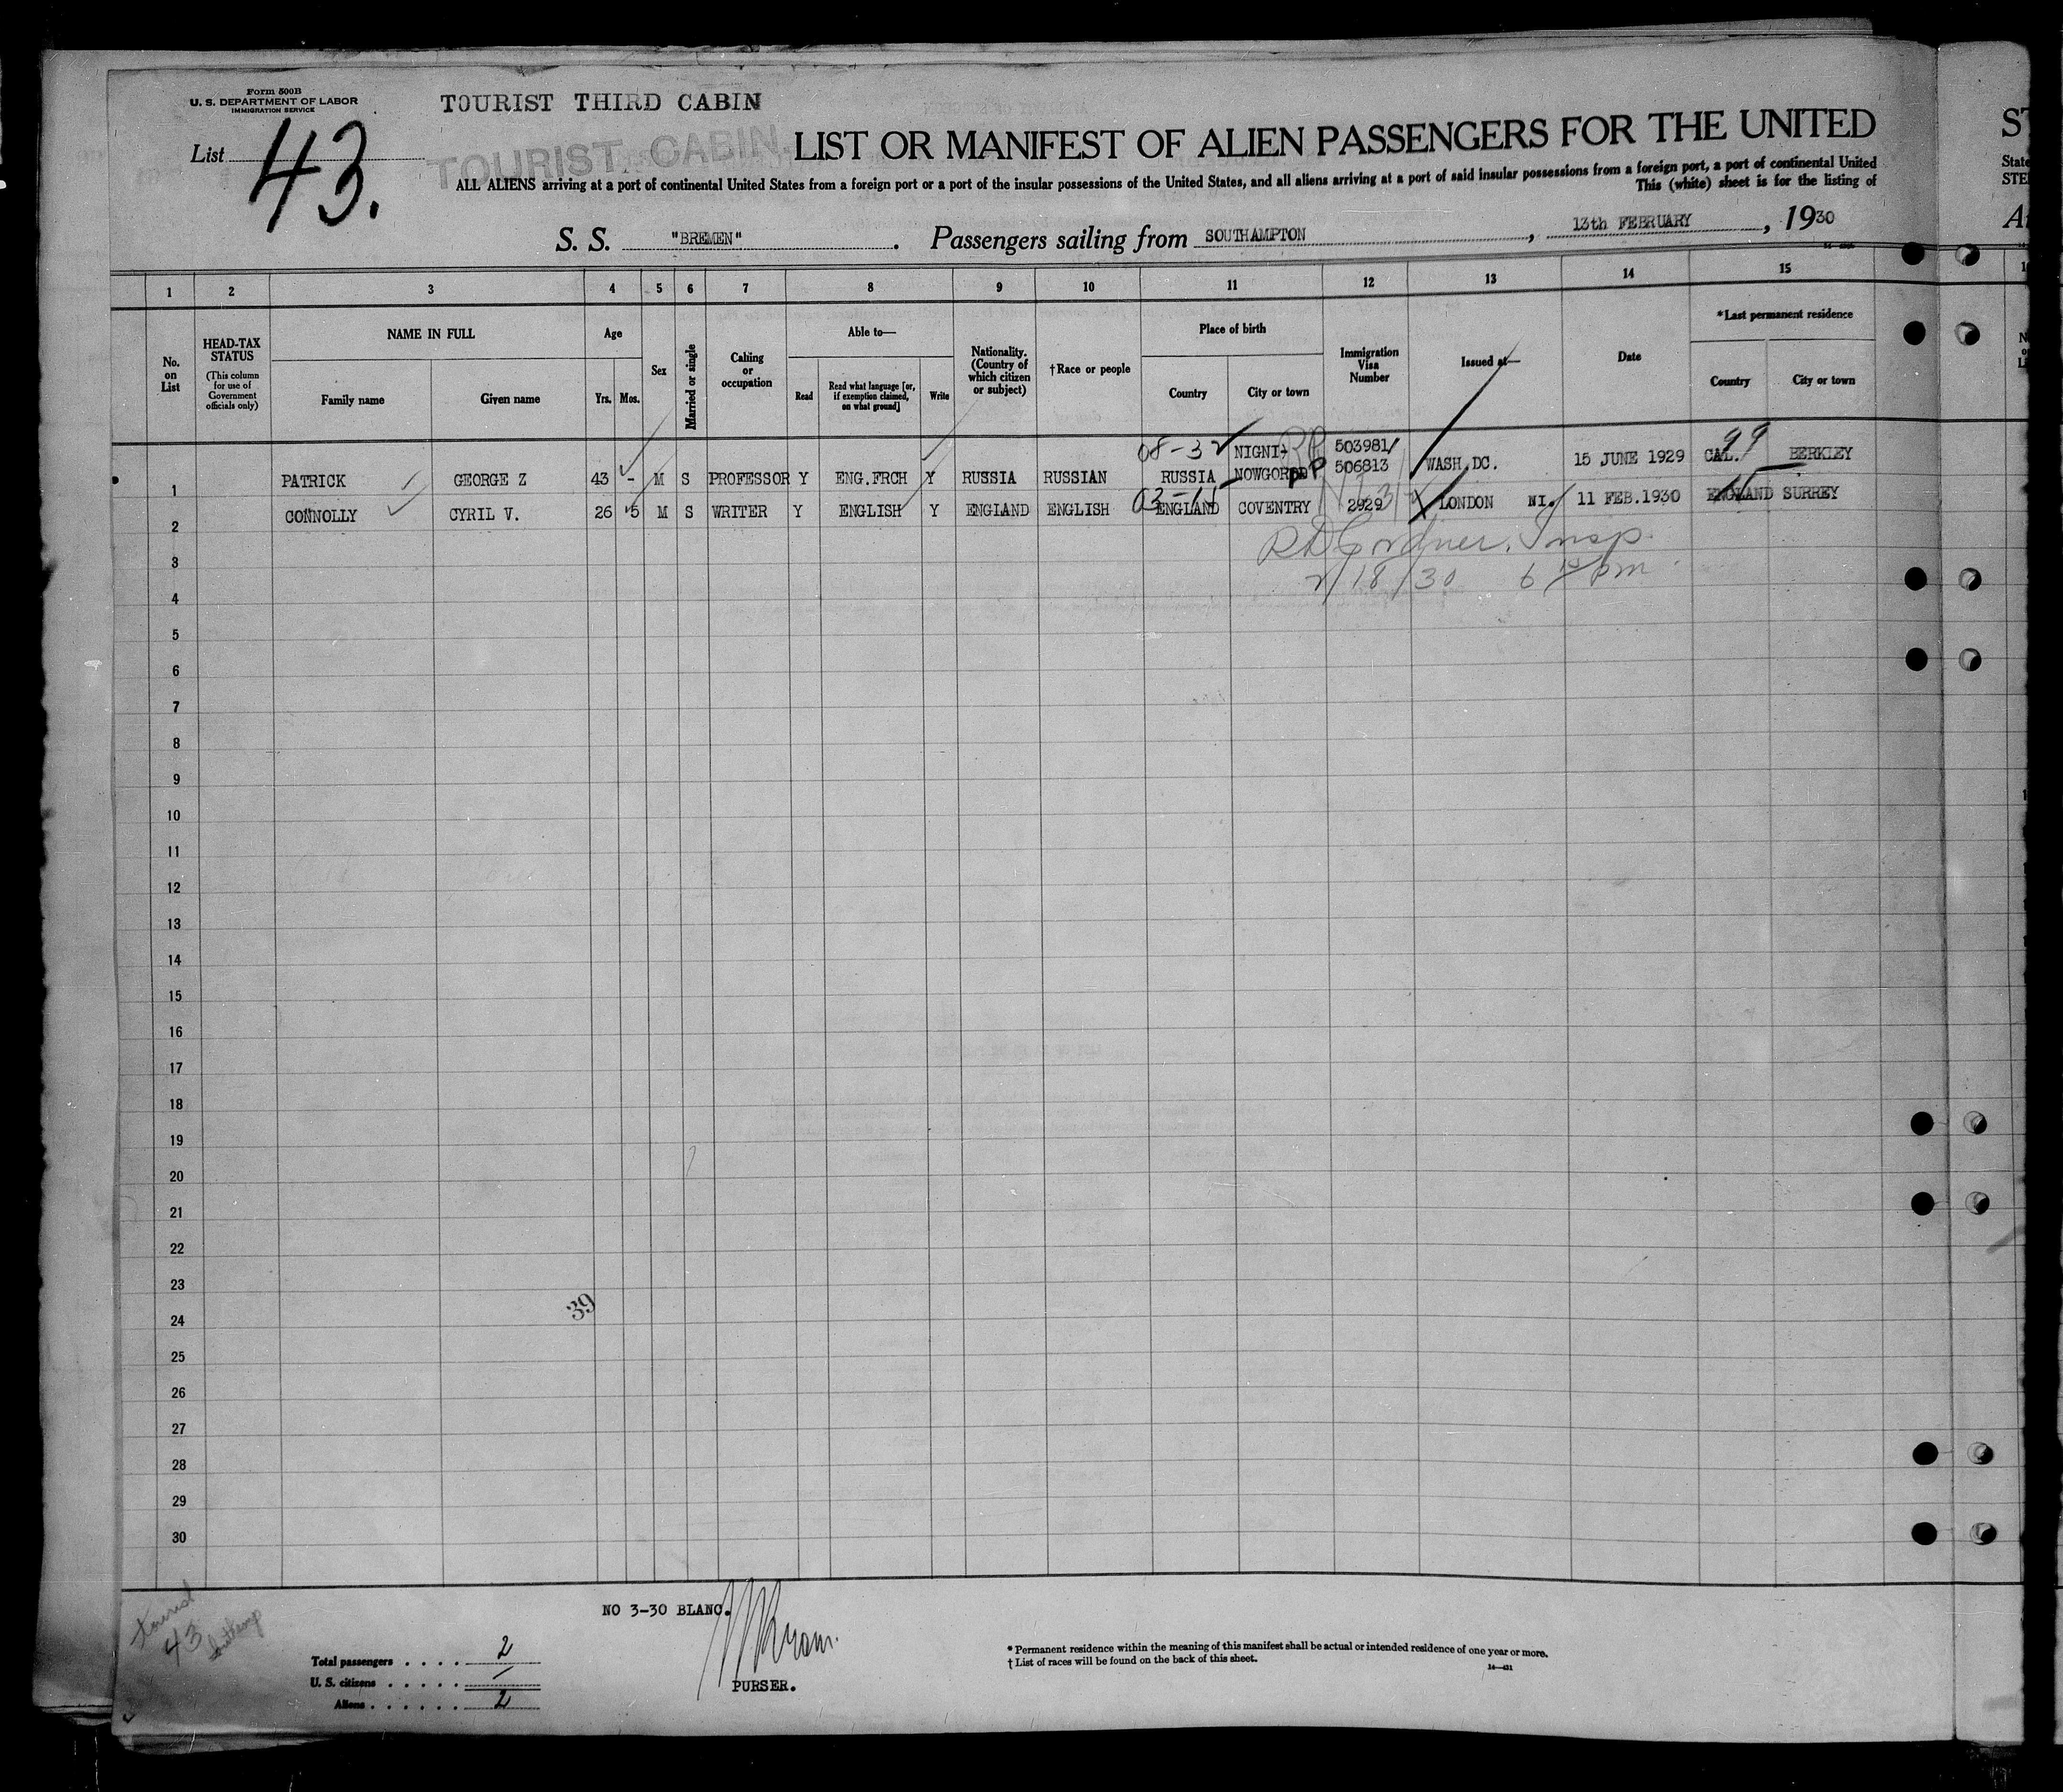 Form 500B
U. S. DEPARTMENT OF LABOR
IMMIGRATION SERVICE
TOURIST THIRD CABIN
List 43.
TOURIST CABIN.
LIST OR MANIFEST OF ALIEN PASSENGERS FOR THE UNITED
ALL ALIENS arriving at a port of continental United States from a foreign port or a port of the insular possessions of the United States, and all aliens arriving at a port of said insular possessions from a foreign port, a port of continental United
This (white) sheet is for the listing of
S. S. "BREMEN". Passengers sailing from SOUTHAMPTON, 13th FEBRUARY, 1930
1 2 3 4 5 6 7 8 9 10 11 12 13 14 15
No. on List
HEAD-TAX STATUS (This column for use of Government officials only)
NAME IN FULL
Family name Given name
Age
Yrs. Mos.
Sex
Married or single
Calling or occupation
Able to—
Read Read what language [or, if exemption claimed, on what ground] Write
Nationality. (Country of which citizen or subject)
†Race or people
Place of birth
Country City or town
Immigration Visa Number
Issued at—
Date
*Last permanent residence
Country City or town
08-32 NIGNI- 503981/ 99
1 PATRICK GEORGE Z 43 - M S PROFESSOR Y ENG.FRCH Y RUSSIA RUSSIAN RUSSIA NOWGOROD PP 506813 WASH.DC. 15 JUNE 1929 CAL. BERKLEY
03-11 15
2 CONNOLLY CYRIL V. 26 5 M S WRITER Y ENGLISH Y ENGLAND ENGLISH ENGLAND COVENTRY 2929 LONDON NI. 11 FEB.1930 ENGLAND SURREY
RD Gordner, Insp.
2/18/30 6 pm
3
4
5
6
7
8
9
10
11
12
13
14
15
16
17
18
19
20
21
22
23
24
25
26
27
28
29
30
39
NO 3-30 BLANC.
PURSER.
tourist
43
Southamp
Total passengers . . . . 2
U. S. citizens . . . . . /
Aliens . . . . . . 2
* Permanent residence within the meaning of this manifest shall be actual or intended residence of one year or more.
† List of races will be found on the back of this sheet.
14—421
ST
State
STE